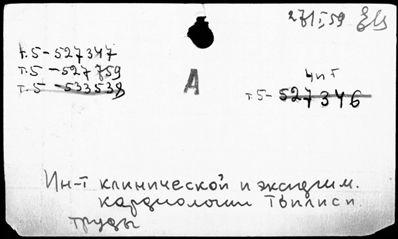 27/I 59
т.5-527347
т.5-527759
т.5-533538
А
чит
т.5-527346
Ин-т клинической и эксперим.
кардиологии Тбилиси.
труды